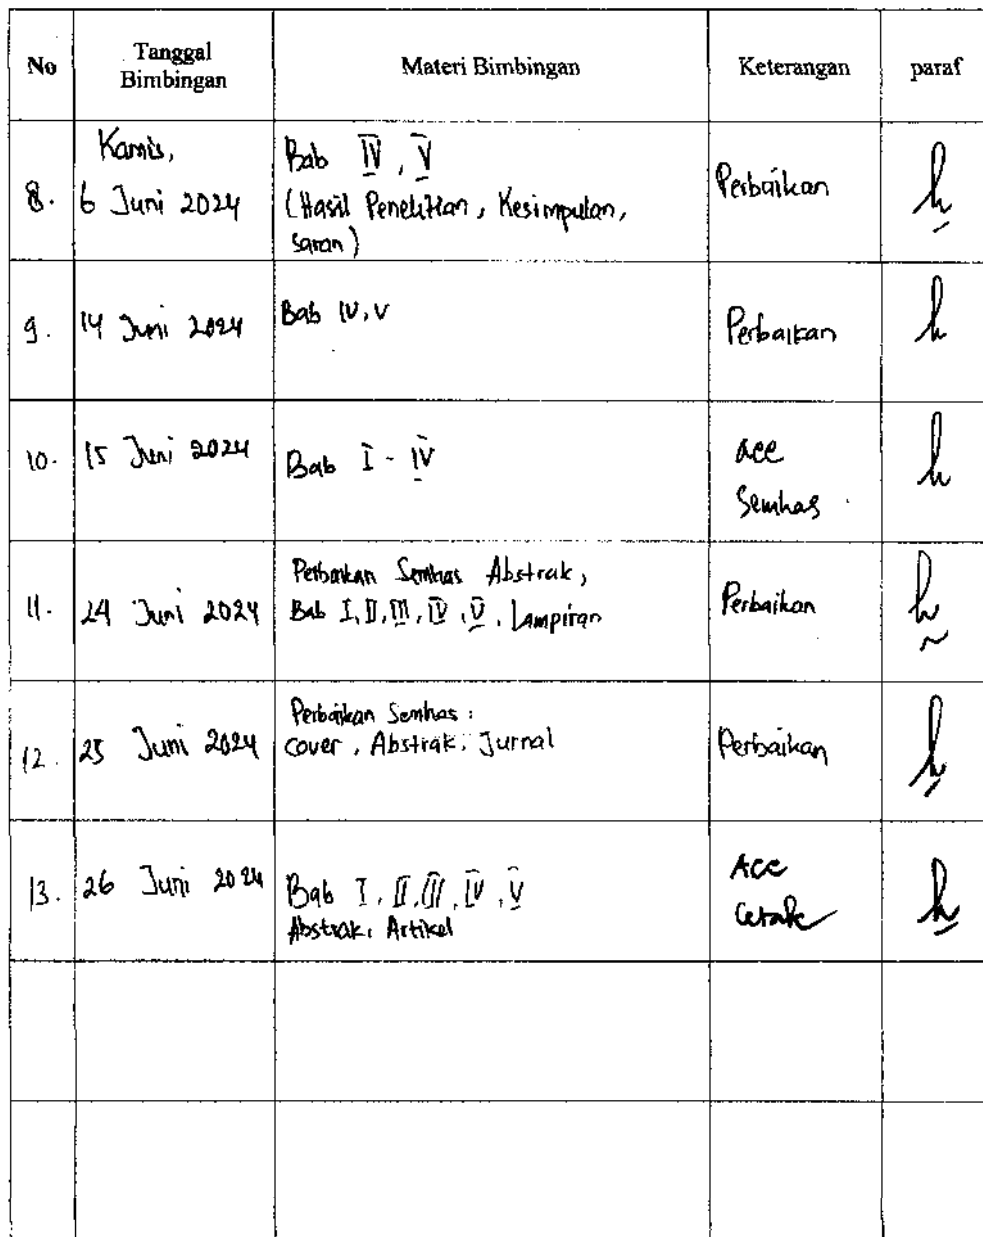 No Tanggal Bimbingan Materi Bimbingan Keterangan paraf
8. Kamis, 6 Juni 2024 Bab IV, V Perbaikan
(Hasil Penelitian, Kesimpulan,
saran)
9. 14 Juni 2024 Bab IV, V Perbaikan
10. 15 Juni 2024 Bab I - IV acc
Semhas
11. 24 Juni 2024 Perbaikan Semhas Abstrak, Perbaikan
Bab I, II, III, IV, V, Lampiran
12. 25 Juni 2024 Perbaikan Semhas: Perbaikan
cover, Abstrak, Jurnal
13. 26 Juni 2024 Bab I, II, III, IV, V Acc
Abstrak, Artikel Cetak